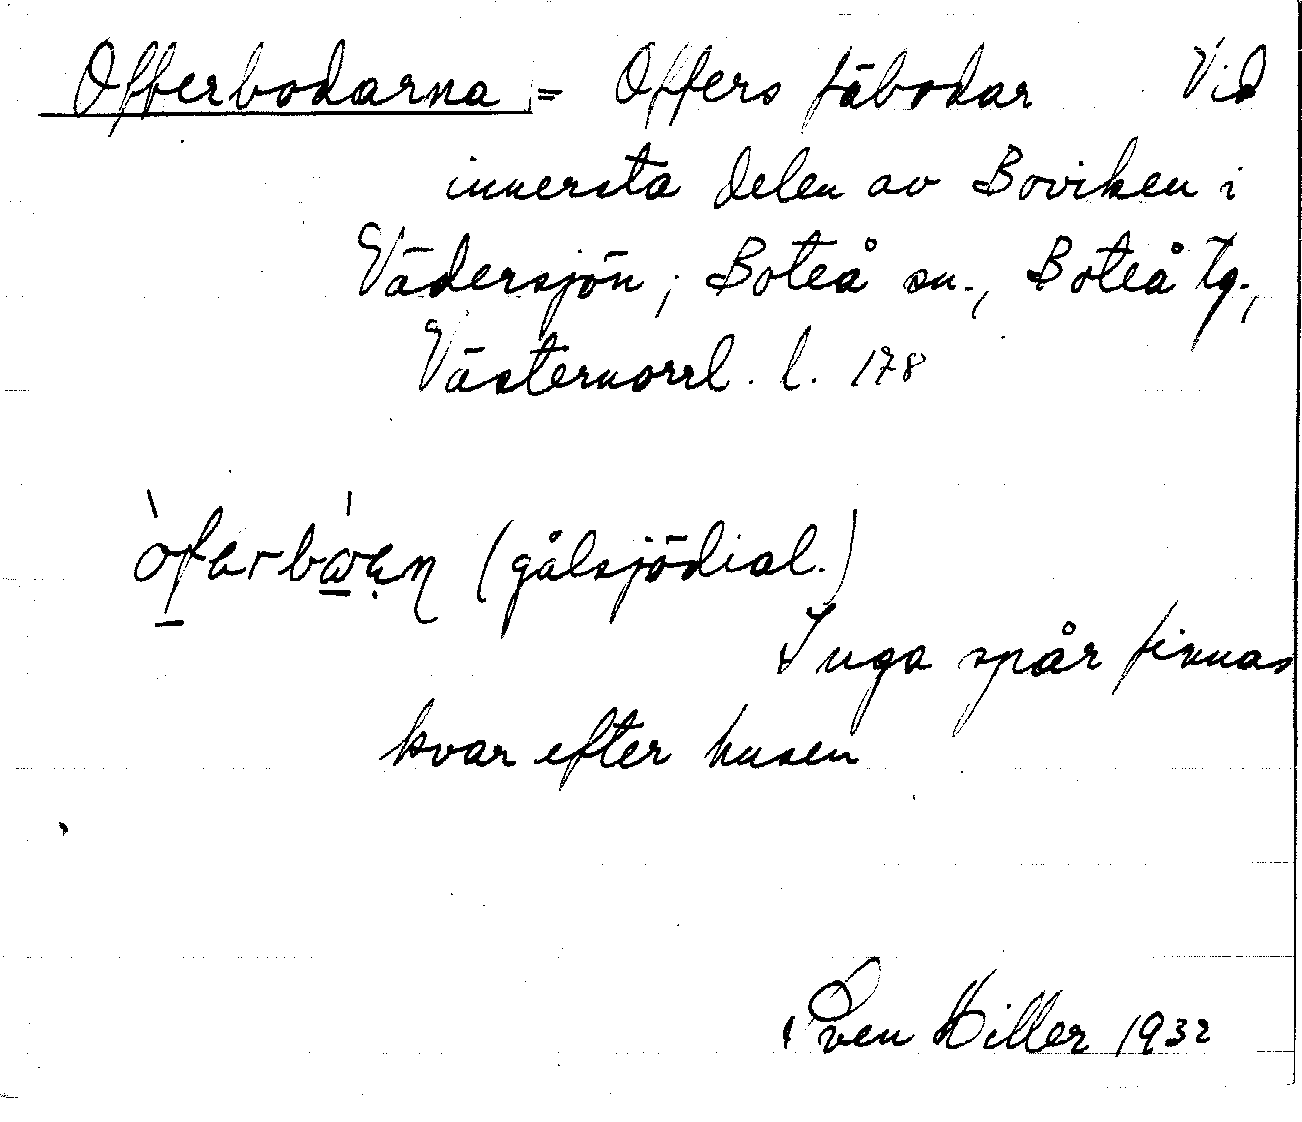 Offerbodarna = Offers fäbodar Vid
innersta delen av Boviken i
Vädersjön; Boteå sn., Boteå tg.,
Västernorrl. l. 178
(gålsjödial.)
Inga spår finnas
kvar efter husen
Sven Hiller 1932